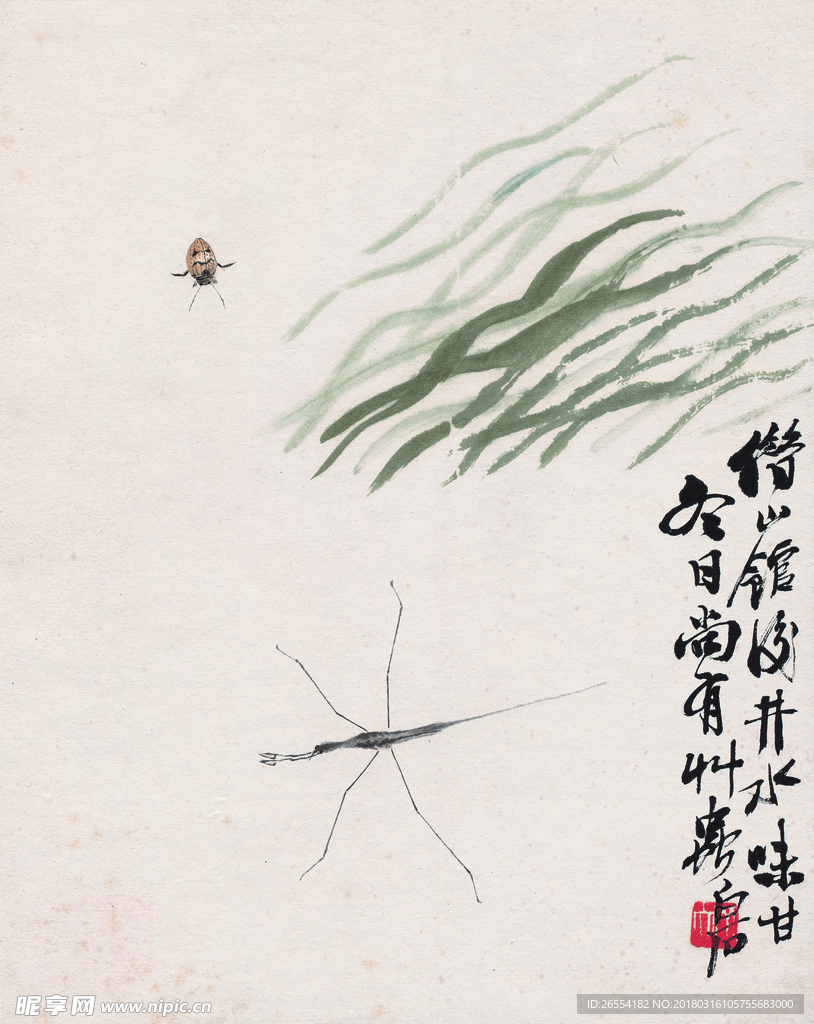 借山館後井水味甘
冬日尚有艸蟲白石
昵享网 www.nipic.cn
ID:26554182 NO:20180316105755683000